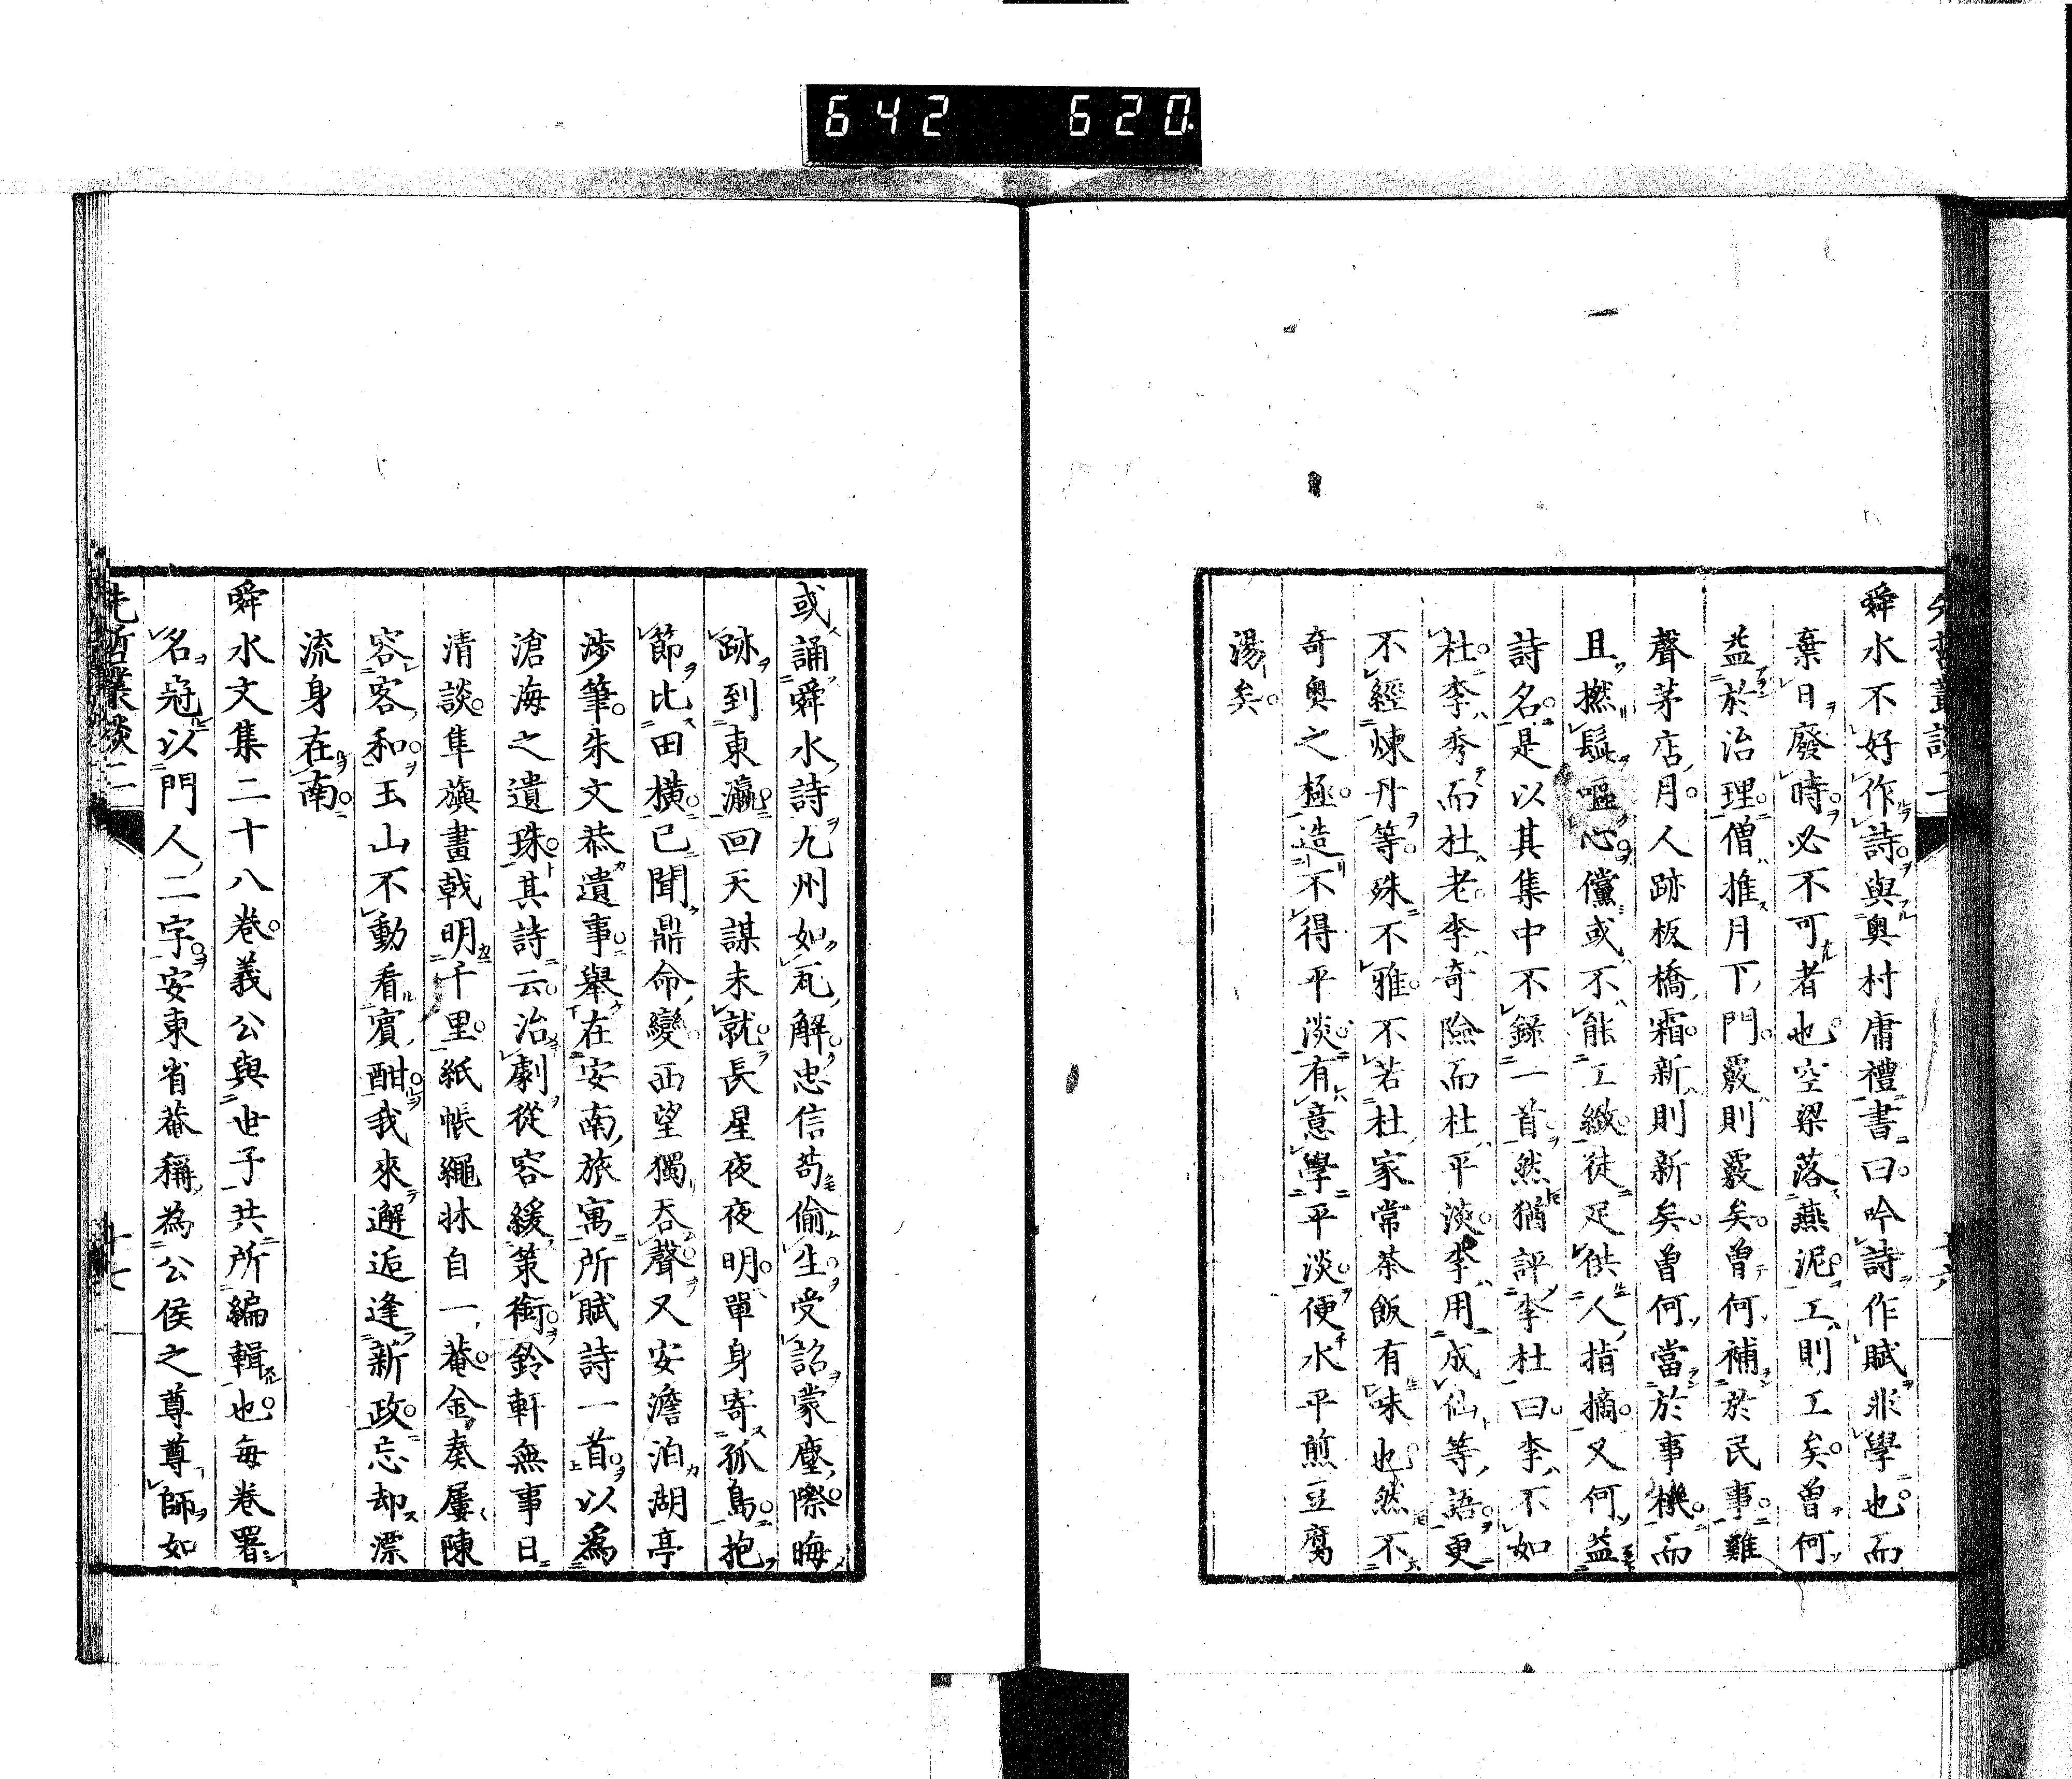 642 620.
先哲叢談二
舜水不好作詩與奧村庸禮書曰吟詩作賦非學也而
棄日廢時必不可者也空梁落燕泥工則工矣曾何
益於治理僧推月下門覈則覈矣曾何補於民事雞
聲茅店月人跡板橋霜新則新矣曾何當於事機而
且撚鬚嘔心儻或不能工緻徒足供人指摘又何益
詩名是以其集中不錄一首然猶評李杜曰李不如
杜李秀而杜老李奇險而杜平淡李用成仙等語更
不經煉丹等殊不雅不若杜家常茶飯有味也然不
奇奧之極造不得平淡有意學平淡便水平煎豆腐
湯矣
或誦舜水詩九州如瓦解忠信苟偷生受詔蒙塵際晦
跡到東瀛回天謀未就長星夜夜明單身寄孤島抱
節比田橫已聞鼎命變西望獨吞聲又安澹泊湖亭
涉筆朱文恭遺事舉在安南旅寓所賦詩一首以為
滄海之遺珠其詩云治劇從容緩策銜鈴軒無事日
清談隼旟畫戟明千里紙帳繩牀自一菴金奏屢陳
容客和玉山不動看賓酣我來邂逅逢新政忘却漂
流身在南
舜水文集二十八卷義公與世子共所編輯也每卷署
名冠以門人二字安東省菴稱為公侯之尊尊師如
先哲叢談二 十七